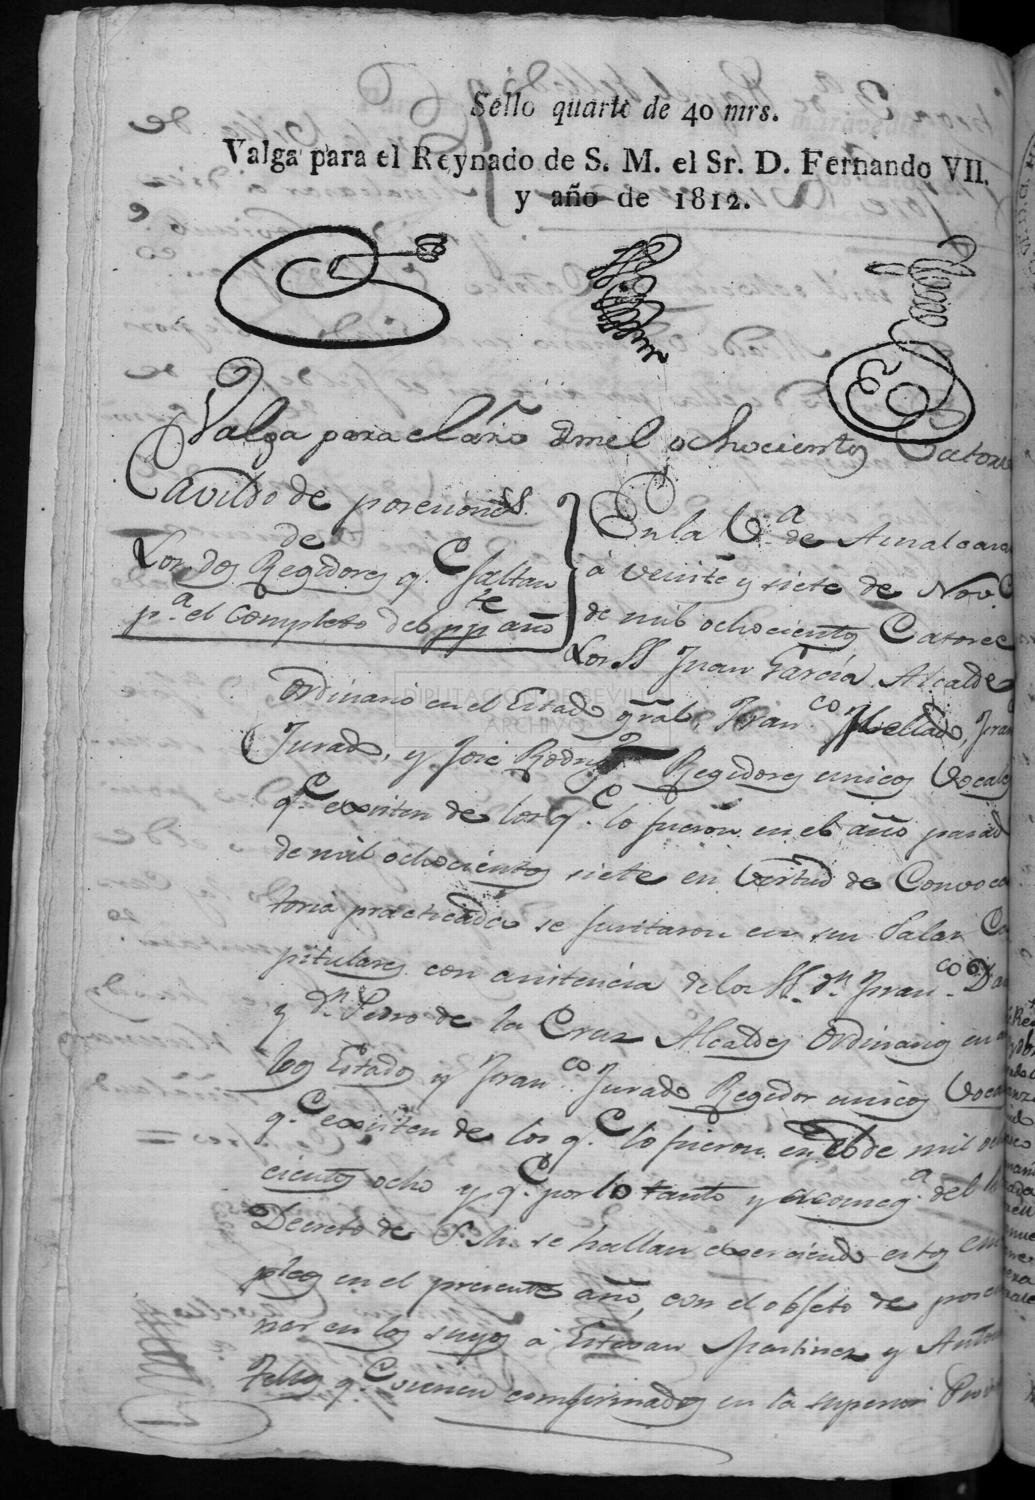 Sello quarto de 40 mrs.
Valga para el Reynado de S. M. el Sr. D. Fernando VII.
y año de 1812.
Valga para el año de mil ochocientos Catorce
Cavildo de posecion
de
Los dos Regidores q.e faltan
p.a el completo del pp.te año
En la V.a de Aznalcazar
à veinte y siete de Nov.e
de mil ochocientos Catorce
Los SS Juan Garcia Alcalde
Ordinario en el Estado gral, Fran.co Mellado, Fran
Jurado, y Jose Rodrig.z Regidores unicos Vocales
q.e existen de los q.e lo fueron en el año pasado
de mil ochocientos siete en Vertud de Convoca
toria practicada se juntaron en su Salas Ca
pitulares con asistencia de los SS. Dn Fran.co
y Dn. Pedro de la Cruz Alcaldes Ordinarios en
los Estados y Fran.co Jurado Regidor unicos Vocal
q.e existen de los q.e lo fueron en el de mil ocho
cientos ocho y q.e por lo tanto y del
Decreto de S. M. se hallan exerciendo estos em
pleos en el presente año, con el objeto de posecio
nar en los suyos à Estevan Martinez y Antonio
Tello q.e vienen comfirmados en la superior
DIPUTACIÓN DE SEVILLA
ARCHIVO